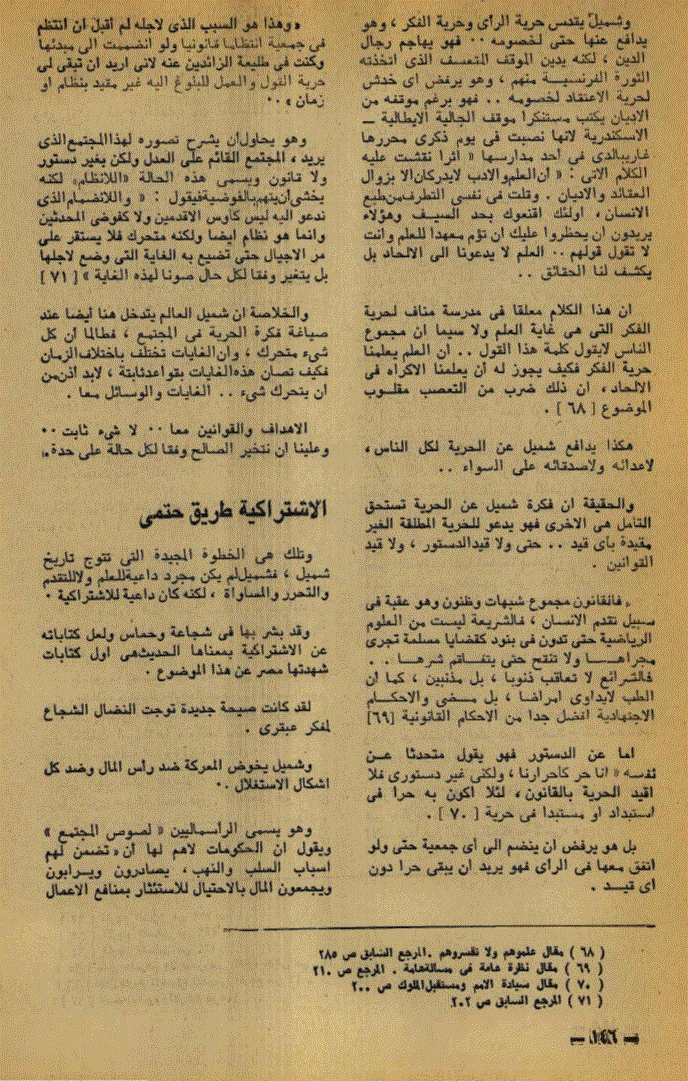 وشميل يقدس حرية الرأى وحرية الفكر ، وهو
يدافع عنها حتى لخصومه ٠٠ فهو يهاجم رجال
الدين ، لكنه يدين الموقف المتعسف الذى اتخذته
الثورة الفرنسية منهم ، وهو يرفض اى خدش
لحرية الاعتقاد لخصومه . . فهو برغم موقفه من
الاديان يكتب مستنكرا موقف الجالية الايطالية _
الاسكندرية لانها نصبت فى يوم ذكرى محررها
غاريبالدى فى احد مدارسها « أثرا نقشت عليه
الكلام الاتى : « ان العلم والادب لايدركان الا بزوال
العقائد والاديان . وقلت فى نفسى التطرف من طبع
الانسان ، اولئك اقنعوك بحد السيف وهؤلاء
يريدون ان يحظروا عليك ان تؤم معهدا للعلم وانت
لا تقول قولهم .. العلم لا يدعونا الى الالحاد بل
يكشف لنا الحقائق . .
ان هذا الكلام معلقا فى مدرسة مناف لحرية
الفكر التى هى غاية العلم ولا سيما ان مجموع
الناس لايقول كلمة هذا القول . . ان العلم يعلمنا
حرية الفكر فكيف يجوز له أن يعلمنا الاكراه فى
الالحاد ، ان ذلك ضرب من التعصب مقلوب
الموضوع [ ٦٨ ] .
هكذا يدافع شميل عن الحرية لكل الناس ،
لاعدائه ولاصدقائه على السواء . .
والحقيقة ان فكرة شميل عن الحرية تستحق
التأمل هى الاخرى فهو يدعو للحرية المطلقة الغير
مقيدة بأى قيد . . حتى ولا قيد الدستور ، ولا قيد
القوانين .
فالقانون مجموع شبهات وظنون وهو عقبة فى
سبيل تقدم الانسان ، فالشريعة ليست من العلوم
الرياضية حتى تدون فى بنود كقضايا مسلمة تجرى
مجراهـــا ولا تنقح حتى يتفاقم شرهـا . .
فالشرائع لا تعاقب ذنوبا ، بل مذنبين ، كما ان
الطب لايداوى امراضا ، بل مرضى والاحكـام
الاجتهادية افضل جدا من الاحكام القانونية [٦٩]
اما عن الدستور فهو يقول متحدثا عـن
نفسه « انا حر كاحرارنا ، ولكنى غير دستورى فلا
اقيد الحرية بالقانون ، لئلا اكون به حرا فى
استبداد او مستبدا فى حرية [ ٧٠ ] .
بل هو يرفض ان ينضم الى أى جمعية حتى ولو
اتفق معها فى الرأى فهو يريد ان يبقى حرا دون
اى قيـد .
« وهذا هو السبب الذى لاجله لم اقبل ان انتظم
فى جمعية انتظاما قانونيا ولو انضممت الى مبدئها
وكنت فى طليعة الزائدين عنه لانى اريد ان تبقى لى
حرية القول والعمل للبلوغ اليه غير مقيد بنظام او
زمان » ٠٠
وهو يحاول ان يشرح تصوره لهذا المجتمع الذى
يريد ، المجتمع القائم على العدل ولكن بغير دستور
ولا قانون ويسمى هذه الحالة « اللانظام » لكنه
يخشى ان يتهم بالفوضية فيقول : « واللانضمام الذى
ندعو اليه ليس كاوس الاقدمين ولا كفوضى المحدثين
وانما هو نظام ايضا ولكنه متحرك فلا يستقر على
مر الاجيال حتى تضيع به الغاية التى وضع لاجلها
بل يتغير وفقا لكل حال صونا لهذه الغاية » [ ٧١ ]
والخلاصة ان شميل العالم يتدخل هنا ايضا عند
صياغة فكرة الحرية فى المجتمع ، فطالما أن كل
شىء متحرك ، وان الغايات تختلف باختلاف الزمان
فكيف تصان هذه الغايات بقواعد ثابتة ، لابد اذن من
ان يتحرك شىء . . الغايات والوسائل معا .
الاهداف والقوانين معا ٠٠ لا شىء ثابت ٠٠
وعلينا ان نتخير الصالح وفقا لكل حالة على حدة .
الاشتراكية طريق حتمى
وتلك هى الخطوة المجيدة التى تتوج تاريخ
شميل ، فشميل لم يكن مجرد داعية للعلم ولا للتقدم
والتحرر والمساواة ، لكنه كان داعية للاشتراكية .
وقد بشر بها فى شجاعة وحماس ولعل كتاباته
عن الاشتراكية بمعناها الحديث هى اول كتابات
شهدتها مصر عن هذا الموضوع .
لقد كانت صيحة جديدة توجت النضال الشجاع
لمفكر عبقرى .
وشميل يخوض المعركة ضد رأس المال وضد كل
اشكال الاستغلال . .
وهو يسمى الرأسماليين « لصوص المجتمع »
ويقول ان الحكومات لاهم لها أن « تضمن لهم
اسباب السلب والنهب ، يصادرون ويرابون
ويجمعون المال بالاحتيال للاستئثار بمنافع الاعمال
( ٦٨ ) مقال علموهم ولا تقسروهم . المرجع السابق ص ٢٨٥
( ٦٩ ) مقال نظرة عامة فى مسألة هامة . المرجع ص ٢١٠
( ٧٠ ) مقال سيادة الامم ومستقبل الملوك ص ٢٠٠
( ٧١ ) المرجع السابق ص ٢٠٢
— ١٤٦ —